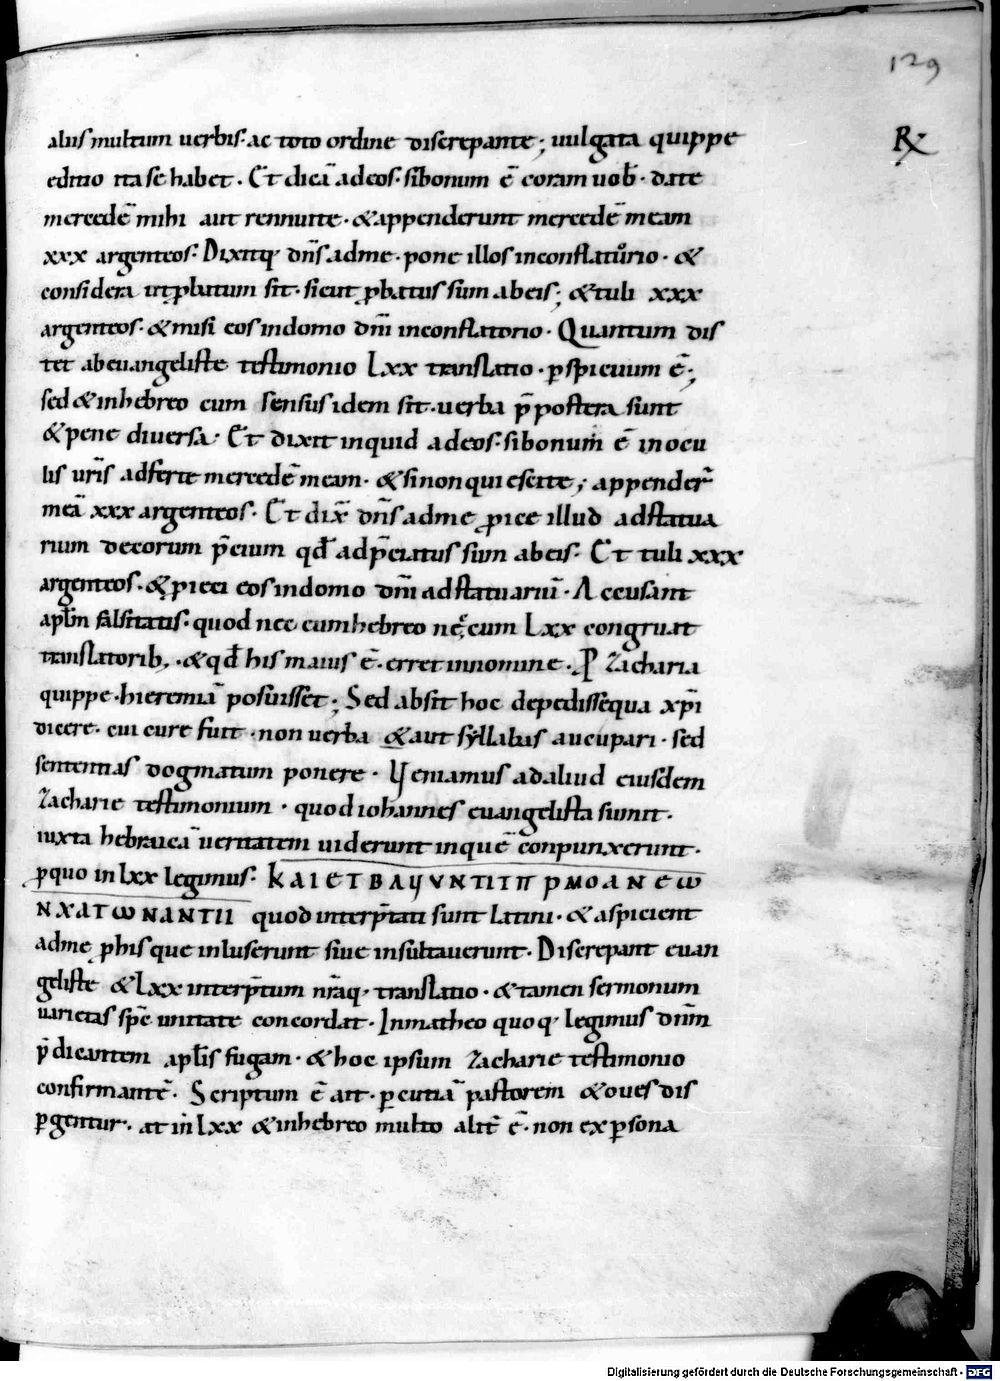 129
aliis multum uerbis· ac toto ordine discrepante; uulgata quippe
Rx
editio ita se habet· Et dicā ad eos· si bonum ē coram uob̄· date
mercedē mihi aut rennuite· & appenderunt mercedē meam
xxx argenteos· Dixitq· dn̄s ad me· pone illos in conflatorio· &
considera utr̄ probatum sit· sicut ꝓbatus sum ab eis; & tuli xxx
argenteos· & misi eos in domo dn̄i in conflatorio· Quantum dis
tet ab euangeliste testimonio Lxx translatio· ꝑspicuum ē;
sed & in hebreo cum sensus idem sit· uerba p̄postera sunt
& pene diuersa· Et dixit inquid ad eos· si bonum ē in ocu
lis ur̄is adferte mercedē meam· & si non quiescite; appender̄
meā xxx argenteos· Et dix̄ dn̄s ad me ꝓice illud ad statua
rium decorum p̄cium qd̄ adp̄ciatus sum ab eis· Et tuli xxx
argenteos· & ꝓieci eos in domo dn̄i ad statuariū· Accusant
apl̄m falsitatis· quod nec cum hebreo nec cum Lxx congruat
translatorib;· & qd̄ his maius ē· erret in nomine· P Zacharia
quippe· hieremiā posuisset; Sed absit hoc de pedissequa xp̄i
dicere· cui cure fuit· non uerba & aut syllabas aucupari· sed
sententias dogmatum ponere· Ueniamus ad aliud eiusdem
Zacharie testimonium· quod iohannes euangelista sumit·
iuxta hebraicā ueritatem uiderunt in quē conpunxerunt·
ꝓ quo in lxx legimus· ΚΑΙ ΕΤΒΛΥΥΝΤΙΤΠΡΜΟΑΝΕω
ΝΧΑΤωΝΑΝΤΙΙ quod interp̄tati sunt Latini· & aspicient
ad me ꝓ his que inluserunt siue insultauerunt· Discrepant euan
geliste & Lxx interp̄tum nr̄aq· translatio· & tamen sermonum
uarietas sp̄c unitate concordat· In matheo quoq· legimus dn̄m
p̄dicantem apl̄is fugam· & hoc ipsum Zacharie testimonio
confirmantē· Scriptum ē ait· ꝑcutiā pastorem & oues dis
ꝑgentur· at in Lxx & in hebreo multo alit̄ ē· non ex ꝑsona
Digitalisierung gefördert durch die Deutsche Forschungsgemeinschaft - DFG